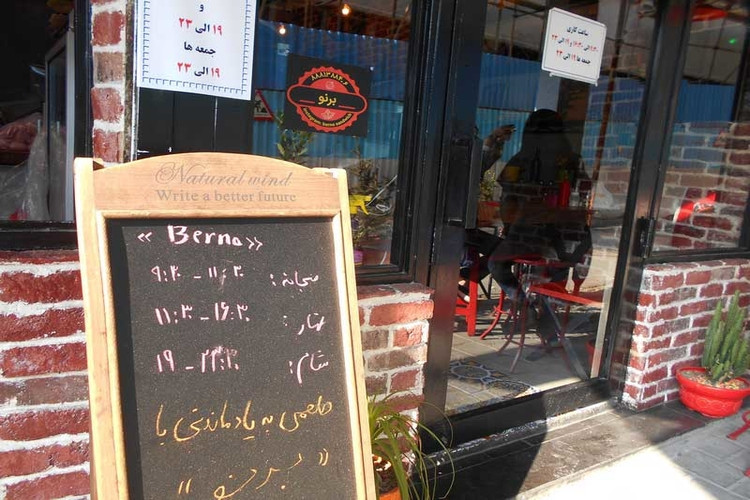 و
۱۹ الی ۲۳
جمعه ها
۱۹ الی ۲۳
برنو
ساعت کاری
جمعه ها ۱۹ الی ۲۳
Natural wind
Write a better future
« Berno »
صبحانه : ۹:۳۰ - ۱۱:۳۰
نهار : ۱۱:۳۰ - ۱۶:۳۰
شام : ۱۹ - ۲۳:۳۰
طعمی به یاد ماندنی با
« برنو »